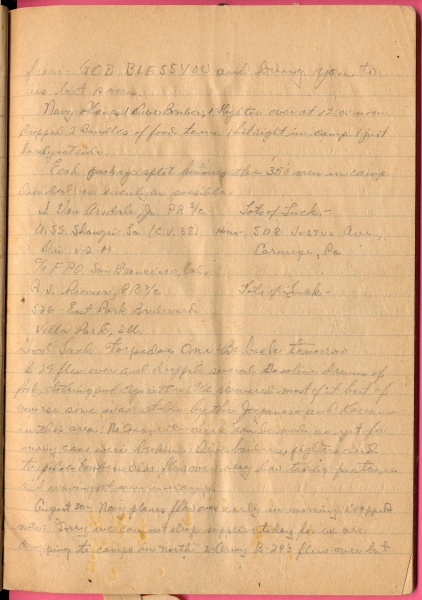 here - GOD BLESS YOU and bring you to
us but soon.
Navy Planes, 1 Dive Bomber, 1 Fighter over at 12:00 noon
dropped 2 Bundles of food to us 1 hit right in camp 1 just
barely outside.
Each package split between the 350 men in camp
as possible.
J. Van Arsdale, Jr. P.R. 3/c Lots of Luck -
U.S.S. Shangri-La (C.V. 38) Home - 508 Ave.,
Div. V-2-M Carnegie, Pa
c/o F.P.O. San Francisco, Cal.
R. J. P.R. 3/c Lots of Luck -
536 - East Park Boulevard
Villa Park, Ill.
Good Luck. Torpedoes Away - Be back tomorrow
B-29 flew over and dropped several Gasoline drums of
food, clothing and cigarettes. We recovered most of it but of
course some was stolen by the Japanese and Koreans
in this area. No check can be made as yet for
many cans were broken. Dive bombers, fighters and
torpedo bombers also flew over very low taking pictures
and waving at camp.
August 30 - Navy planes flew over early in morning dropped
note: Sorry we can not drop supplies today for we are
going to camps in north. 2 B-29's flew over but